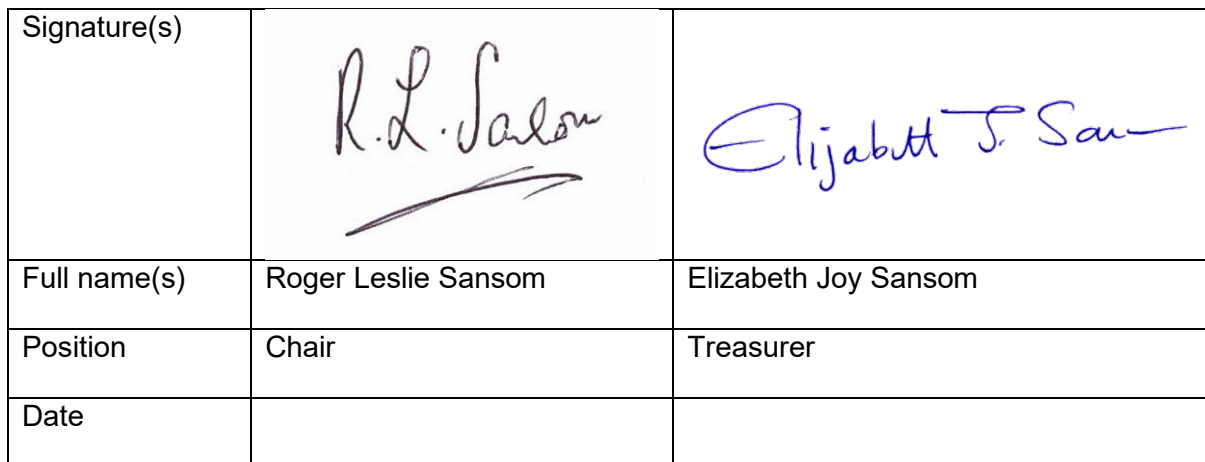 Signature(s) R. L. Sansom Elizabeth J. Sansom
Full name(s) Roger Leslie Sansom Elizabeth Joy Sansom
Position Chair Treasurer
Date